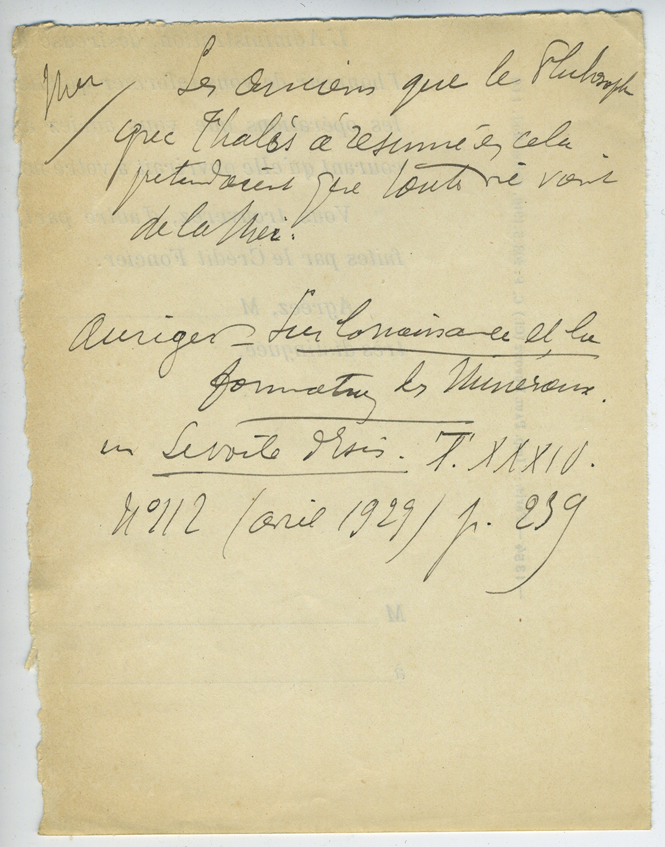 Mer / Les anciens que le Philosoph
grec Thalès a résumé en cela
prétendaient que toute vie vient
de la Mer.
Auriger = Sur la naissance et la
formation des Minéraux.
in Le voile d'Isis. T. XXXIV.
N° 112 (avril 1929) p. 239